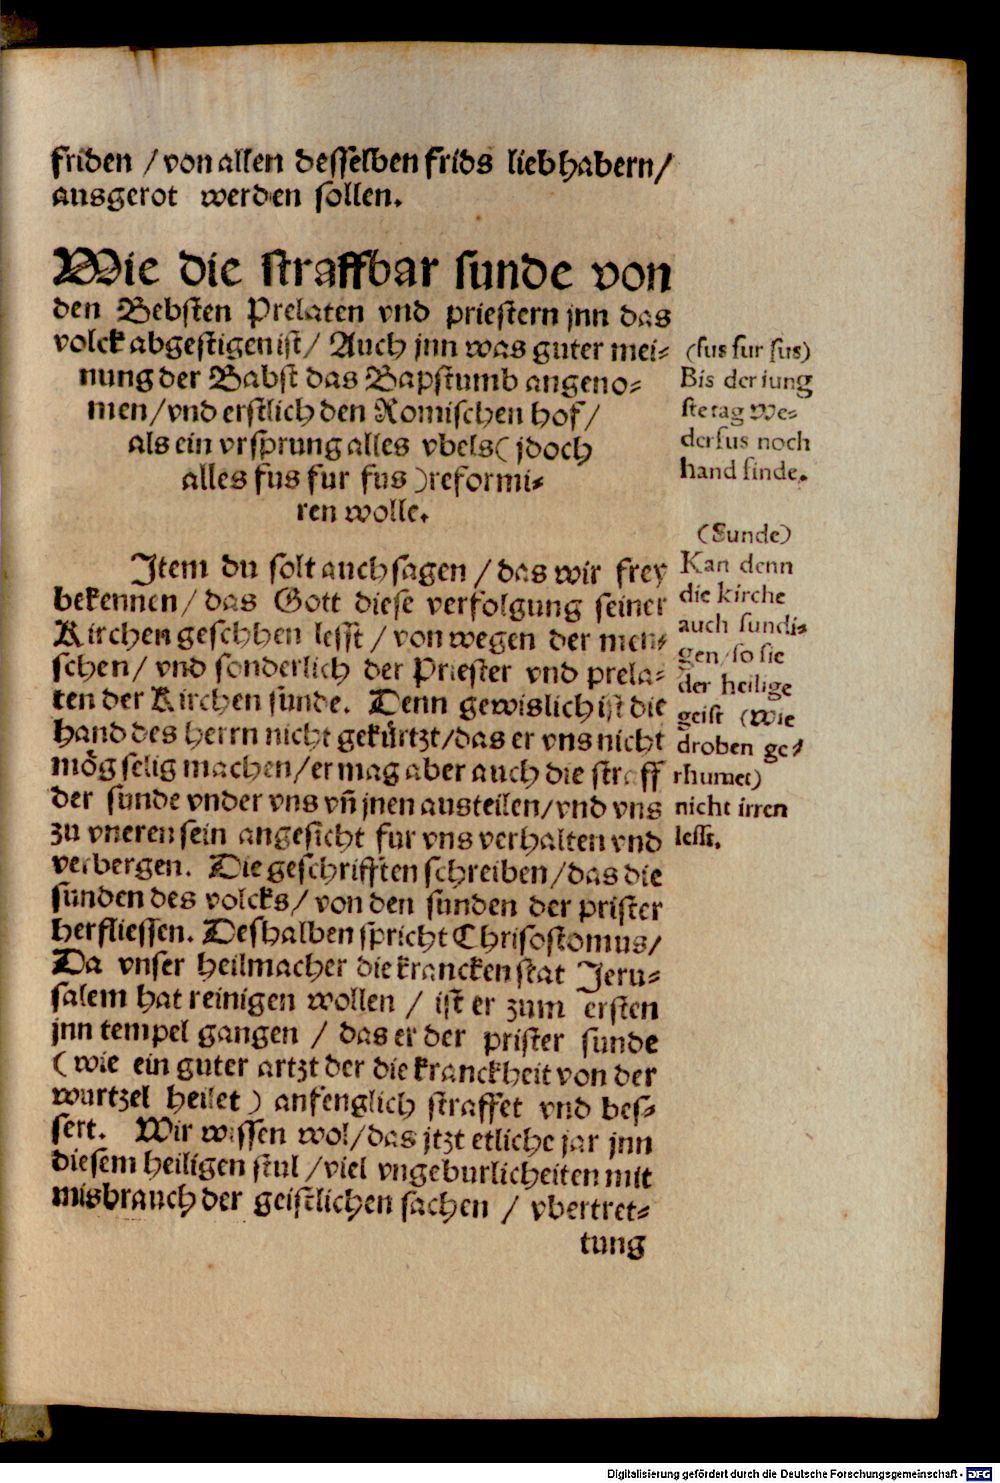 friden / von allen desselben frids liebhabern /
ausgerot werden sollen.
Wie die straffbar sunde von
den Bebsten Prelaten vnd priestern jnn das
volck abgestigen ist / Auch jnn was guter mei⸗
nung der Babst das Bapstumb angeno⸗
men / vnd erstlich den Romischen hof /
als ein vrsprung alles vbels ( jdoch
alles fus fur fus ) reformi⸗
ren wolle.
Item du solt auch sagen / das wir frey
bekennen / das Gott diese verfolgung seiner
Kirchen geschhen lesst / von wegen der men⸗
schen / vnd sonderlich der Priester vnd prela⸗
ten der Kirchen sunde. Denn gewislich ist die
hand des herrn nicht gekürtzt / das er vns nicht
mög selig machen / er mag aber auch die straff
der sunde vnder vns vñ jnen austeilen / vnd vns
zu vneren sein angesicht fur vns verhalten vnd
verbergen. Die geschrifften schreiben / das die
sunden des volcks / von den sunden der prister
herfliessen. Deshalben spricht Chrisostomus /
Da vnser heilmacher die krancken stat Jeru⸗
salem hat reinigen wollen / ist er zum ersten
jnn tempel gangen / das er der prister sunde
( wie ein guter artzt der die kranckheit von der
wurtzel heilet ) anfenglich straffet vnd bes⸗
sert. Wir wissen wol / das jtzt etliche jar jnn
diesem heiligen stul / viel vngeburlicheiten mit
misbrauch der geistlichen sachen / vbertret⸗
tung
(fus fur fus)
Bis der iung
ste tag We⸗
der fus noch
hand finde.
(Sunde)
Kan denn
die kirche
auch sundi⸗
gen / so sie
der heilige
geist (wie
droben ge⸗
rhumet)
nicht irren
lesst.
Digitalisierung gefördert durch die Deutsche Forschungsgemeinschaft - DFG